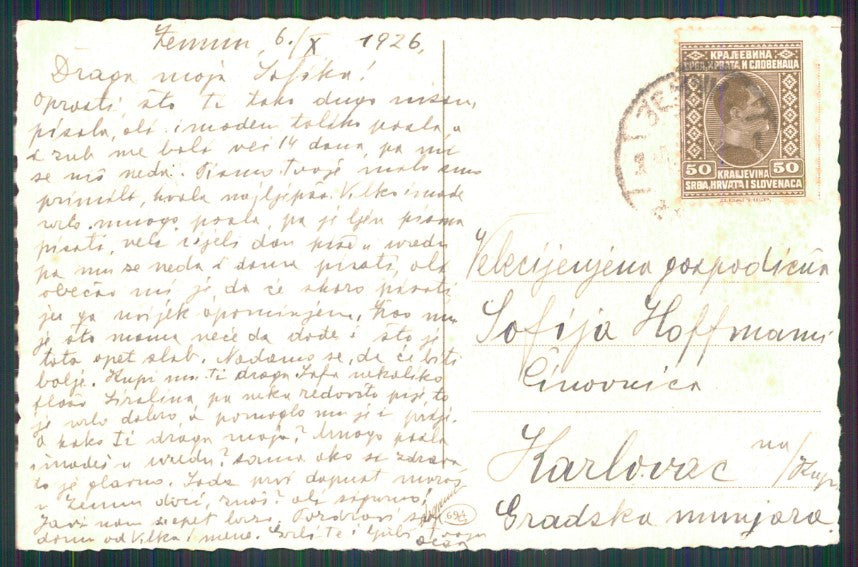 Zemun, 6./X 1926.
Draga moja Sofika!
Oprosti što ti tako dugo nisam
pisala, ali imadem toliko posla, a
i zub me boli već 14 dana, pa mi
se niš neda. Pismo Tvoje
primili, hvala najljepša. Vilko imade
vrlo mnogo posla, pa je lijen pisma
pisati, veli cijeli dan piše u uredu
pa mu se neda i doma pisati, ali
obećao mi je da će skoro pisati
ju ga uvijek opominjem. Žao mi
je što mama neće da dođe i što je
tata opet slab. Nadamo se, da će biti
bolje. Kupi mu ti draga Sofa nekoliko
flaša Sirolina, pa neka redovito pije, to
je vrlo dobro a pomoglo mu je i prije.
A kako Ti draga moja? Mnogo posla
imadeš u uredu? samo ako si zdrava
to je glavno. Sada prvi dopust moraš
u Zemun doći, znaš? ali sigurno!
Javi nam se opet brzo. Pozdravi
doma od Vilka i mene. Grli Te i ljubi Tvoja
694
КРАЉЕВИНА
СРБА, ХРВАТА И СЛОВЕНАЦА
50 50
KRALJEVINA
SRBA, HRVATA I SLOVENACA
ЗЕМУН
Velecijenjena gospodična
Sofija Hoffmann
Činovnica
Karlovac na/Kupi
Gradska munjara.